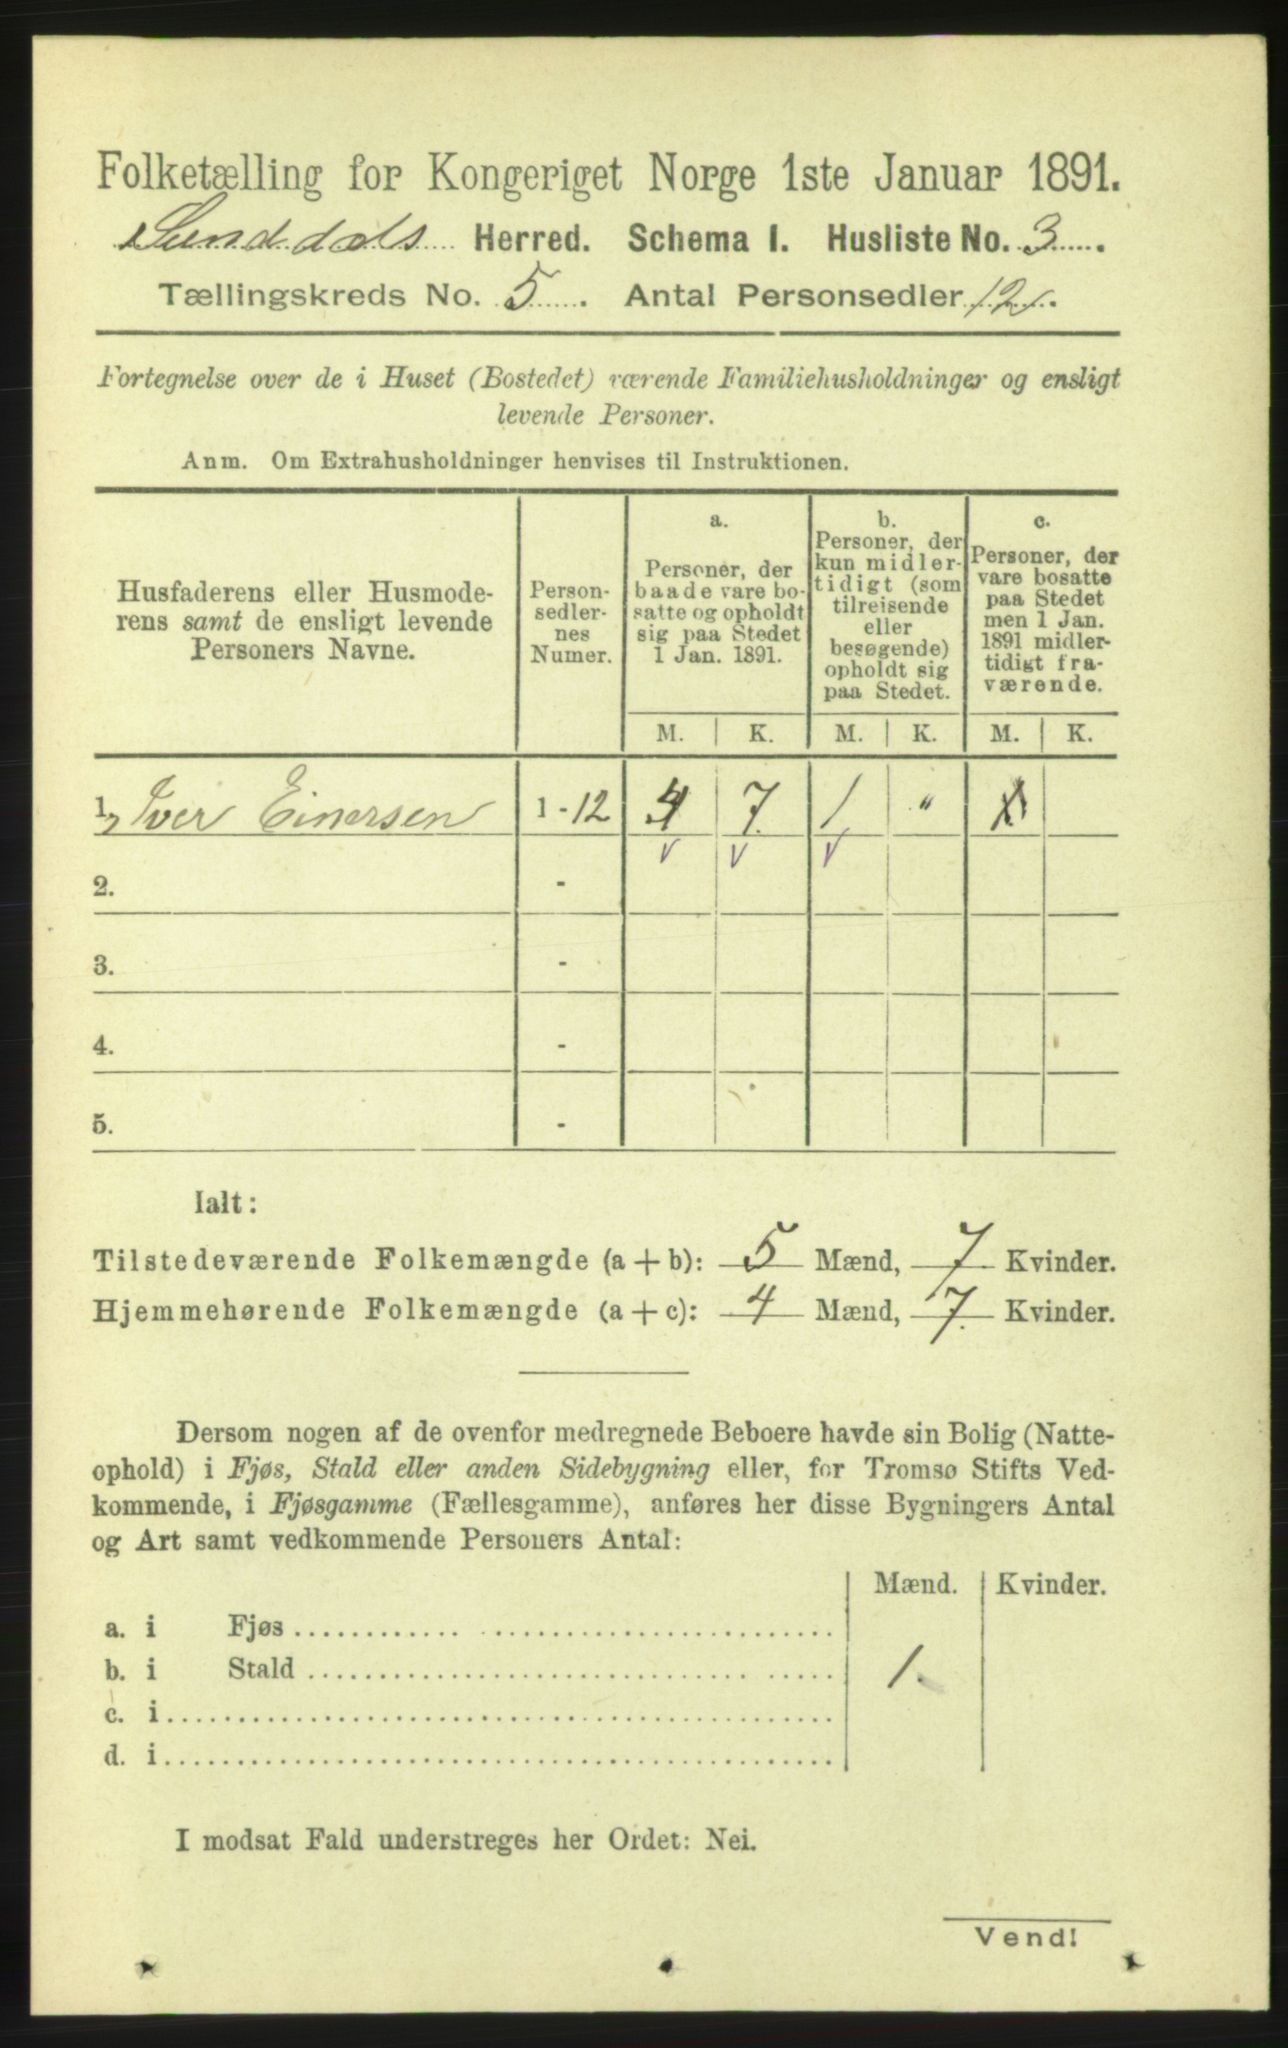 Folketælling for Kongeriget Norge 1ste Januar 1891.
Sunddals Herred. Schema I. Husliste No. 3.
Tællingskreds No. 5. Antal Personsedler 12.
Fortegnelse over de i Huset (Bostedet) værende Familiehusholdninger og ensligt
levende Personer.
Anm. Om Extrahusholdninger henvises til Instruktionen.
Husfaderens eller Husmode-
rens samt de ensligt levende
Personers Navne.
Person-
sedler-
nes
Numer.
a.
Personer, der
baade vare bo-
satte og opholdt
sig paa Stedet
1 Jan. 1891.
b.
Personer, der
kun midler-
tidigt (som
tilreisende
eller
besøgende)
opholdt sig
paa Stedet.
c.
Personer, der
vare bosatte
paa Stedet
men 1 Jan.
1891 midler-
tidigt fra-
værende.
M. K. M. K. M. K.
1. Iver Einersen 1-12 4 7. 1 " 1
v v v
2. -
3. -
4. -
5. -
Ialt:
Tilstedeværende Folkemængde (a + b): 5 Mænd, 7 Kvinder.
Hjemmehørende Folkemængde (a + c): 4 Mænd, 7. Kvinder.
Dersom nogen af de ovenfor medregnede Beboere havde sin Bolig (Natte-
ophold) i Fjøs, Stald eller anden Sidebygning eller, for Tromsø Stifts Ved-
kommende, i Fjøsgamme (Fællesgamme), anføres her disse Bygningers Antal
og Art samt vedkommende Personers Antal:
Mænd. Kvinder.
a. i Fjøs
b. i Stald 1.
c. i
d. i
I modsat Fald understreges her Ordet: Nei.
Vend!